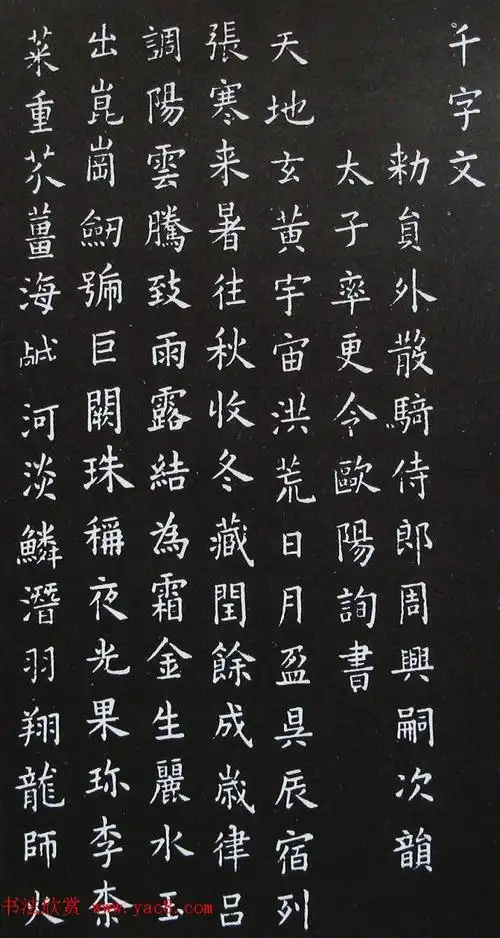 千字文
勑員外散騎侍郎周興嗣次韻
太子率更令歐陽詢書
天地玄黃宇宙洪荒日月盈昃辰宿列
張寒来暑往秋收冬藏閏餘成歲律呂
調陽雲騰致雨露結為霜金生麗水玉
出崑崗劒號巨闕珠稱夜光果珎李柰
菜重芥薑海鹹河淡鱗潛羽翔龍師火
书法欣赏 www.yac8.com